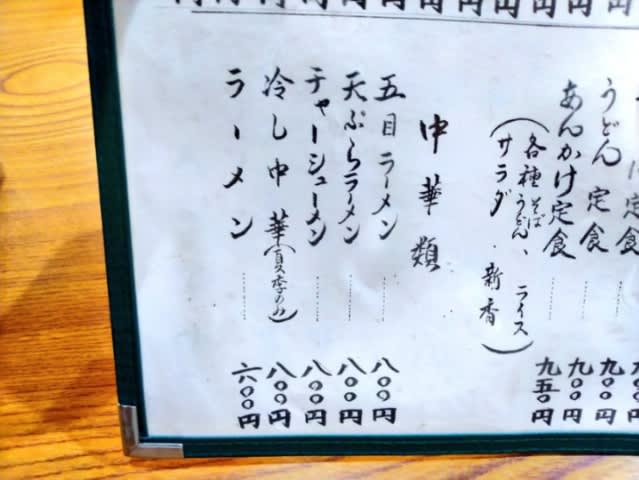 定食……九〇〇円
うどん定食……九〇〇円
あんかけ定食……九五〇円
（各種そばうどん、ライス
サラダ・新香）
中華類
五目ラーメン……八〇〇円
天ぷらラーメン……八〇〇円
チャーシューメン……八〇〇円
冷し中華（夏季のみ）八〇〇円
ラーメン……六〇〇円